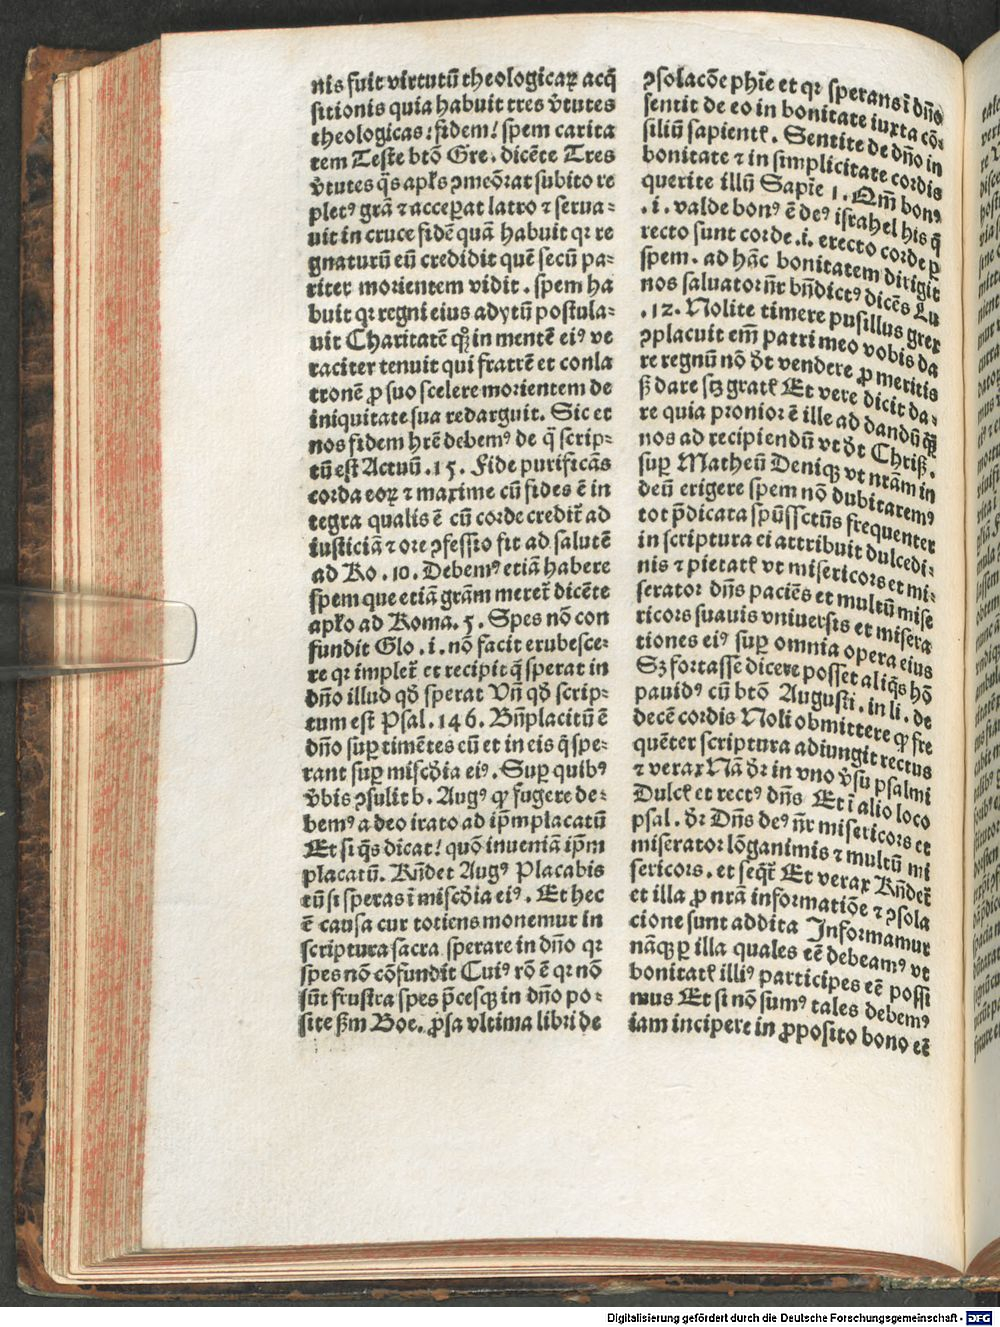 nis fuit virtutū theologicaꝝ acq̄
sitionis quia habuit tres v̓tutes
theologicas: fidem: spem carita
tem Teste btō Gre. dicēte Tres
v̓tutes q̄s apl̓s ꝯmeōrat subito re
plet⁹ grā ⁊ acceꝑat latro ⁊ serua⸗
uit in cruce fidē quā habuit qꝛ re
gnaturū eū credidit quē secū pa⸗
riter morientem vidit. spem ha
buit qꝛ regni eius adytū postula⸗
uit Charitatē qq̄ in mente ei⁹ ve
raciter tenuit qui fratrē et conla
tronē ꝓ suo scelere morientem de
iniquitate sua redarguit. Sic et
nos fidem hr̄e debem⁹ de q̄ scrip⸗
tū est Actuū .15. Fide purificās
corda eoꝝ ⁊ maxime cū fides ē in
tegra qualis ē cū corde credit̄ ad
iusticiā ⁊ ore ꝯfessio fit ad salutē
ad Ro. 10. Debem⁹ etiā habere
spem que etiā grām meret̄ dicēte
apl̓o ad Roma. 5. Spes nō con
fundit Glo. i. nō facit erubesce⸗
re qꝛ implet̄ et recipit q̄ sperat in
dn̄o illud qd̓ sperat Vn̄ qd̓ scrip⸗
tum est Psal. 146. Bn̄placitū ē
dn̄o suꝑ timētes eū et in eis q̄ spe⸗
rant suꝑ misc̓dia ei⁹. Suꝑ quib⁹
v̓bis ꝯsulit b. Aug⁹ ꝙ fugere de⸗
bem⁹ a deo irato ad ip̄m placatū
Et si q̄s dicat: quō inueniā ip̄m
placatū. Rn̄det Aug⁹ Placabis
eū si speras ī misc̓dia ei⁹. Et hec
ē causa cur totiens monemur in
scriptura sacra sperare in dn̄o qꝛ
spes nō cōfundit Cui⁹ rō ē qꝛ nō
sūt frustra spes p̄cesqꝫ in dn̄o po⸗
site sꝫm Boe. ꝓsa vltima libri de
ꝯsolacōe phīe et qꝛ sperans ī dn̄o
sentit de eo in bonitate iuxta cō⸗
siliū sapientꝭ. Sentite de dn̄o in
bonitate ⁊ in simplicitate cordis
querite illū Sapīe 1. Qm̄ bon⁹
.i. valde bon⁹ ē de⁹ israhel his q̄
recto sunt corde .i. erecto corde ꝑ
spem. ad hāc bonitatem dirigit
nos saluator nr̄ bn̄dict⁹ dicēs Lu
.12. Nolite timere pusillus grex
ꝯplacuit em̄ patri meo vobis da
re regnū nō d̓t vendere ꝓ meritis
sꝫ dare scꝫ gratꝭ Et vere dicit da⸗
re quia pronior ē ille ad dandū qꝫ
nos ad recipiendū vt d̓t Chriſ.
suꝑ Matheū Deniqꝫ vt nr̄am in
deū erigere spem nō dubitarem⁹
tot p̄dicata spūssctūs frequenter
in scriptura ei attribuit dulcedi⸗
nis ⁊ pietatꝭ vt misericors et mi⸗
serator dn̄s paciēs et multū mise
ricors suauis vniuersis et misera
tiones ei⁹ suꝑ omnia opera eius
Sꝫ fortasse dicere posset aliq̄s hō
pauid⁹ cū btō Augusti. in li. de
decē cordis Noli obmittere ꝙ fre
quēter scriptura adiungit rectus
⁊ verax Nā d̓r in vno v̓su psalmi
Dulcꝭ et rect⁹ dn̄s Et ī alio loco
psal. d̓r Dn̄s de⁹ nr̄ misericors et
miserator lōganimis ⁊ multū mi
sericors. et seqt̄ Et verax Rn̄det̄
et illa ꝓ nrā informatiōe ⁊ ꝯsola
cione sunt addita Informamur
nāqꝫ ꝑ illa quales eē debeam⁹ vt
bonitatꝭ illi⁹ participes eē possi
mus Et si nō sum⁹ tales debem⁹
iam incipere in ꝓposito bono eē
Digitalisierung gefördert durch die Deutsche Forschungsgemeinschaft - DFG